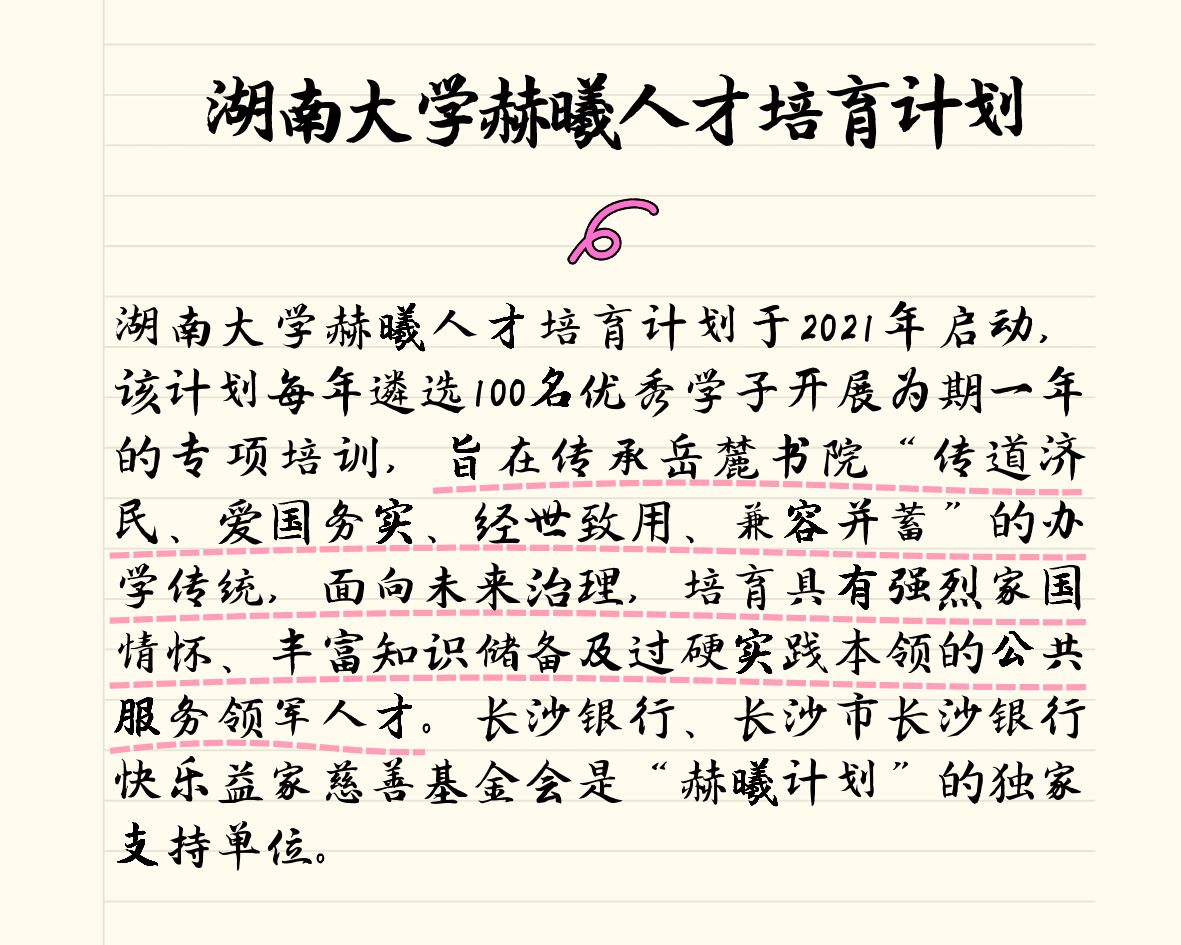 湖南大学赫曦人才培育计划
湖南大学赫曦人才培育计划于2021年启动,
该计划每年遴选100名优秀学子开展为期一年
的专项培训, 旨在传承岳麓书院“传道济
民、爱国务实、经世致用、兼容并蓄”的办
学传统, 面向未来治理, 培育具有强烈家国
情怀、丰富知识储备及过硬实践本领的公共
服务领军人才。长沙银行、长沙市长沙银行
快乐益家慈善基金会是“赫曦计划”的独家
支持单位。